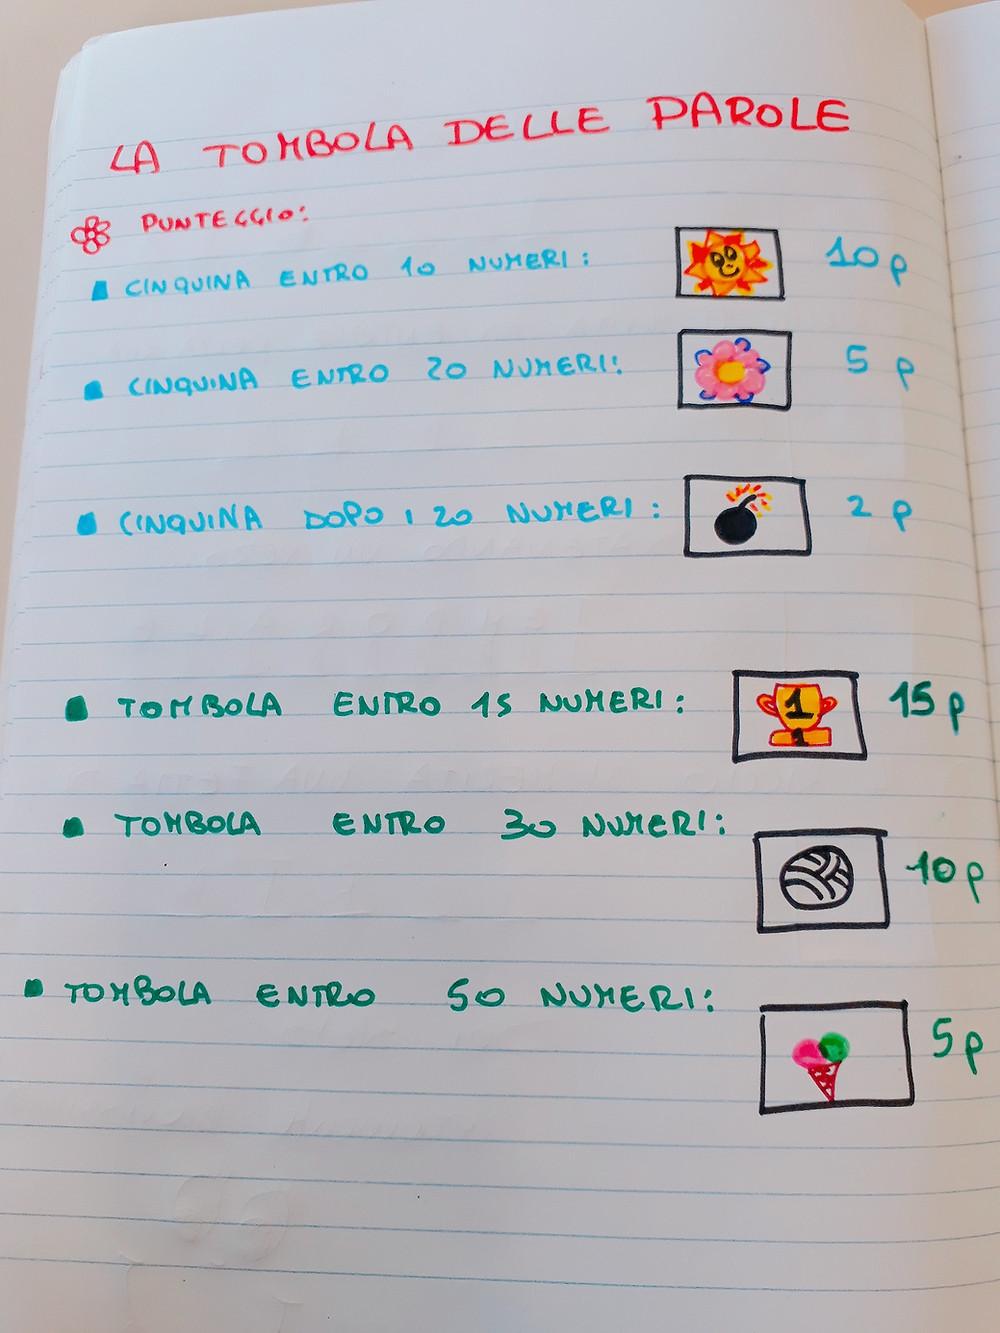 LA TOMBOLA DELLE PAROLE
PUNTEGGIO:
CINQUINA ENTRO 10 NUMERI: 10 p
CINQUINA ENTRO 20 NUMERI: 5 p
CINQUINA DOPO I 20 NUMERI: 2 p
TOMBOLA ENTRO 15 NUMERI: 1 1 15 p
TOMBOLA ENTRO 30 NUMERI: 10 p
TOMBOLA ENTRO 50 NUMERI: 5 p